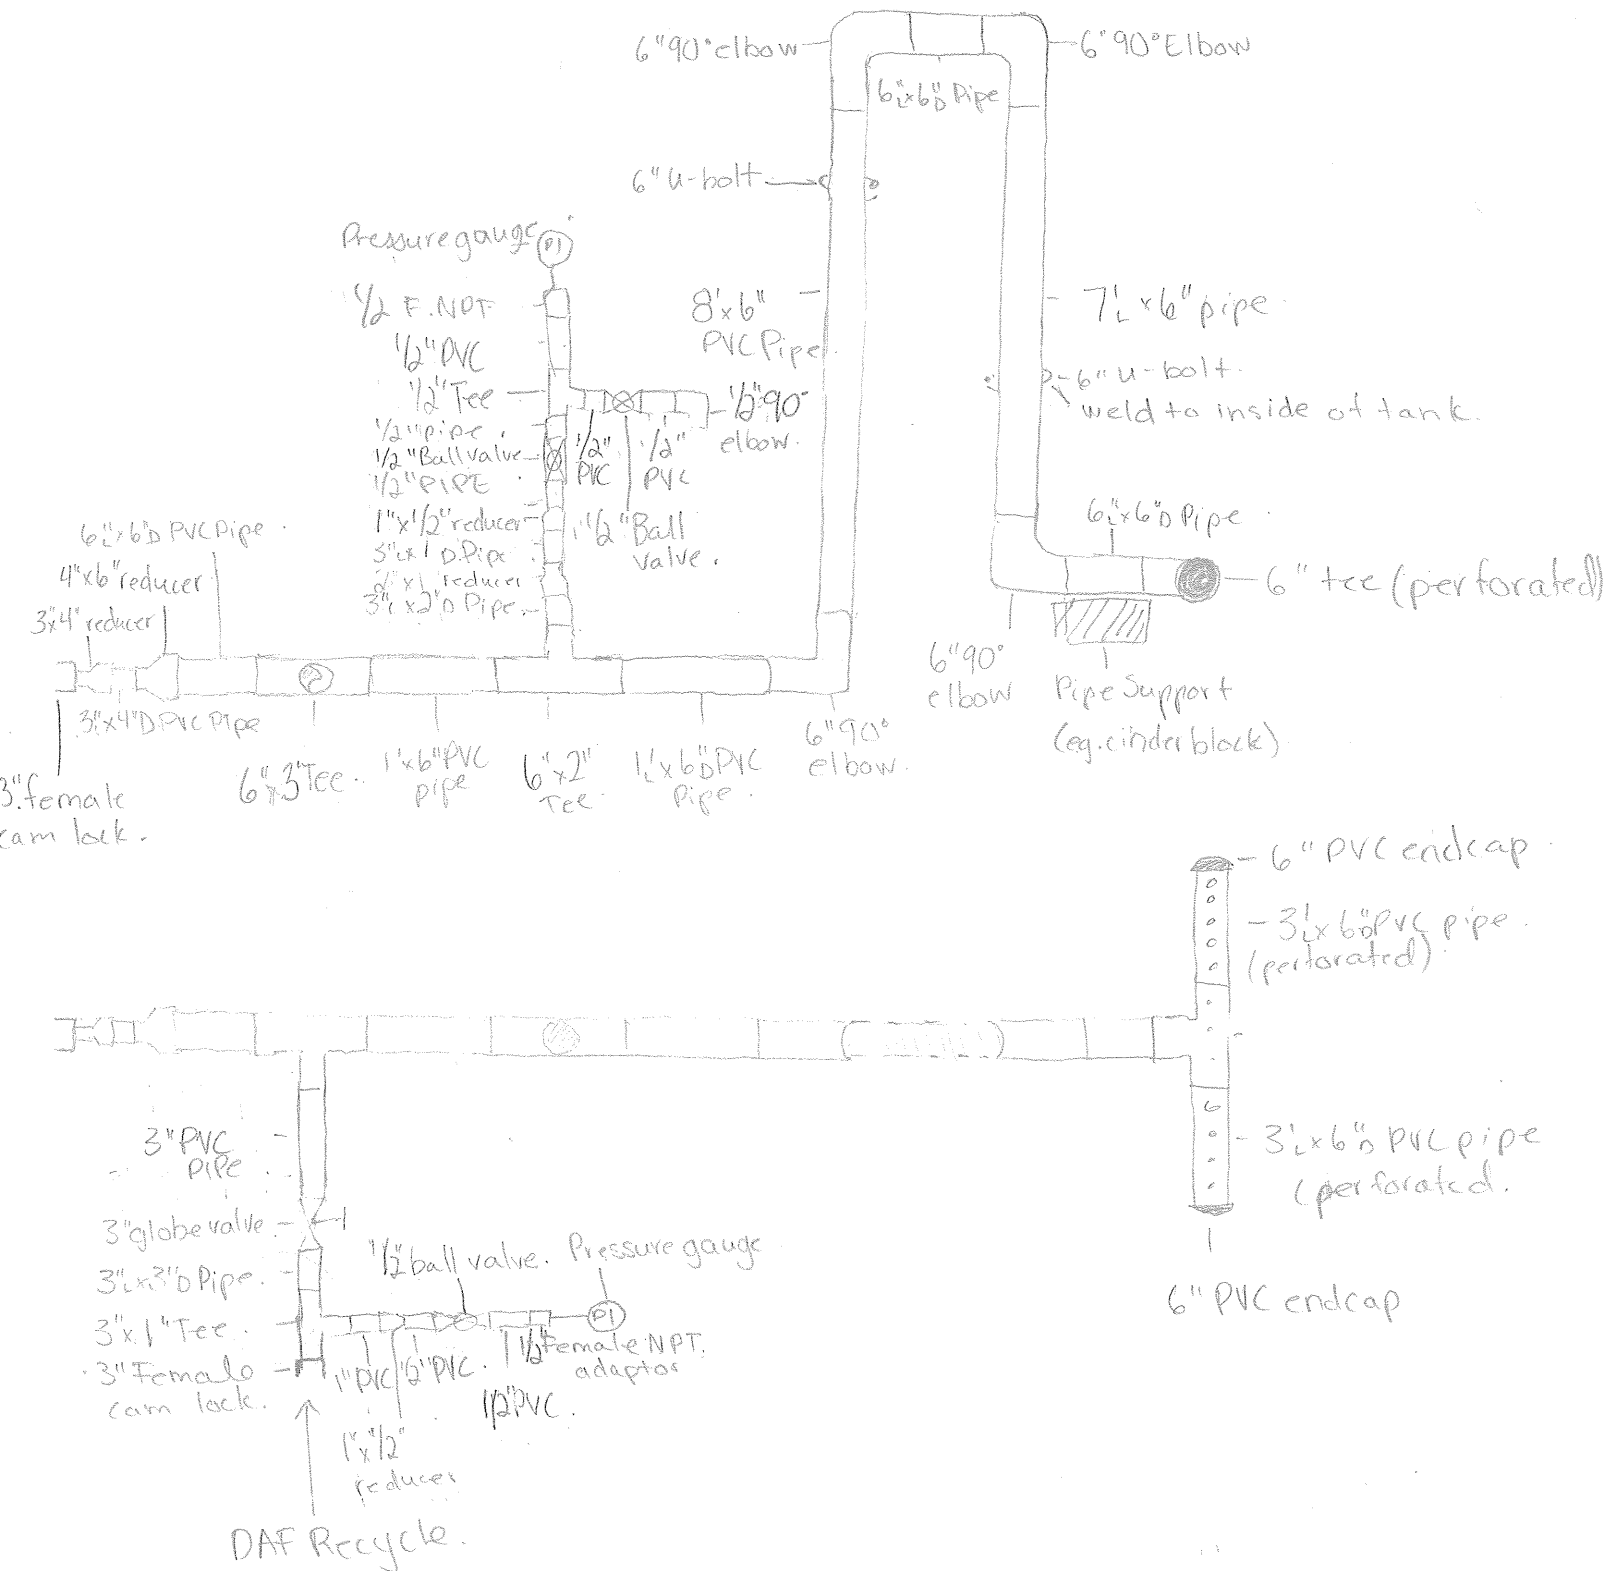 6" 90° elbow
6" 90° Elbow
6"L x 6"D Pipe
6" U-bolt
Pressure gauge
PI
1/2 F. NPT
1/2" PVC
1/2" Tee
1/2" pipe
1/2" Ball valve
1/2" PIPE
1" x 1/2" reducer
3"L x 1"D Pipe
2" x 1" reducer
3"L x 2"D Pipe
1/2"
PVC
1/2"
PVC
1/2" 90°
elbow.
1/2" Ball
valve.
8' x 6"
PVC Pipe
7'L x 6" pipe
6" U-bolt.
weld to inside of tank.
6"L x 6"D Pipe
6" tee (perforated)
6" 90°
elbow
Pipe Support
(eg. cinder block)
6"L x 6"D PVC Pipe
4" x 6" reducer
3" x 4" reducer
3"L x 4"D PVC Pipe
3" female
cam lock.
6" x 3" Tee.
1' x 6" PVC
pipe
6" x 2"
Tee
1'L x 6"D PVC
Pipe.
6" 90°
elbow.
6" PVC endcap
3'L x 6"D PVC pipe.
(perforated)
3'L x 6"D PVC pipe
(perforated.
6" PVC endcap
3" PVC
pipe
3" globe valve
3"L x 3"D Pipe.
3" x 1" Tee.
3" Female
cam lock.
1/2" ball valve.
Pressure gauge
PI
1" PVC
1/2" PVC.
1/2" PVC.
1/2" Female NPT.
adaptor
1" x 1/2"
reducer
DAF Recycle.